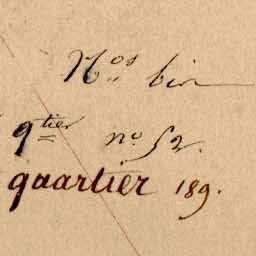 N.os bis
q.tier no. 52.
quartier 189.